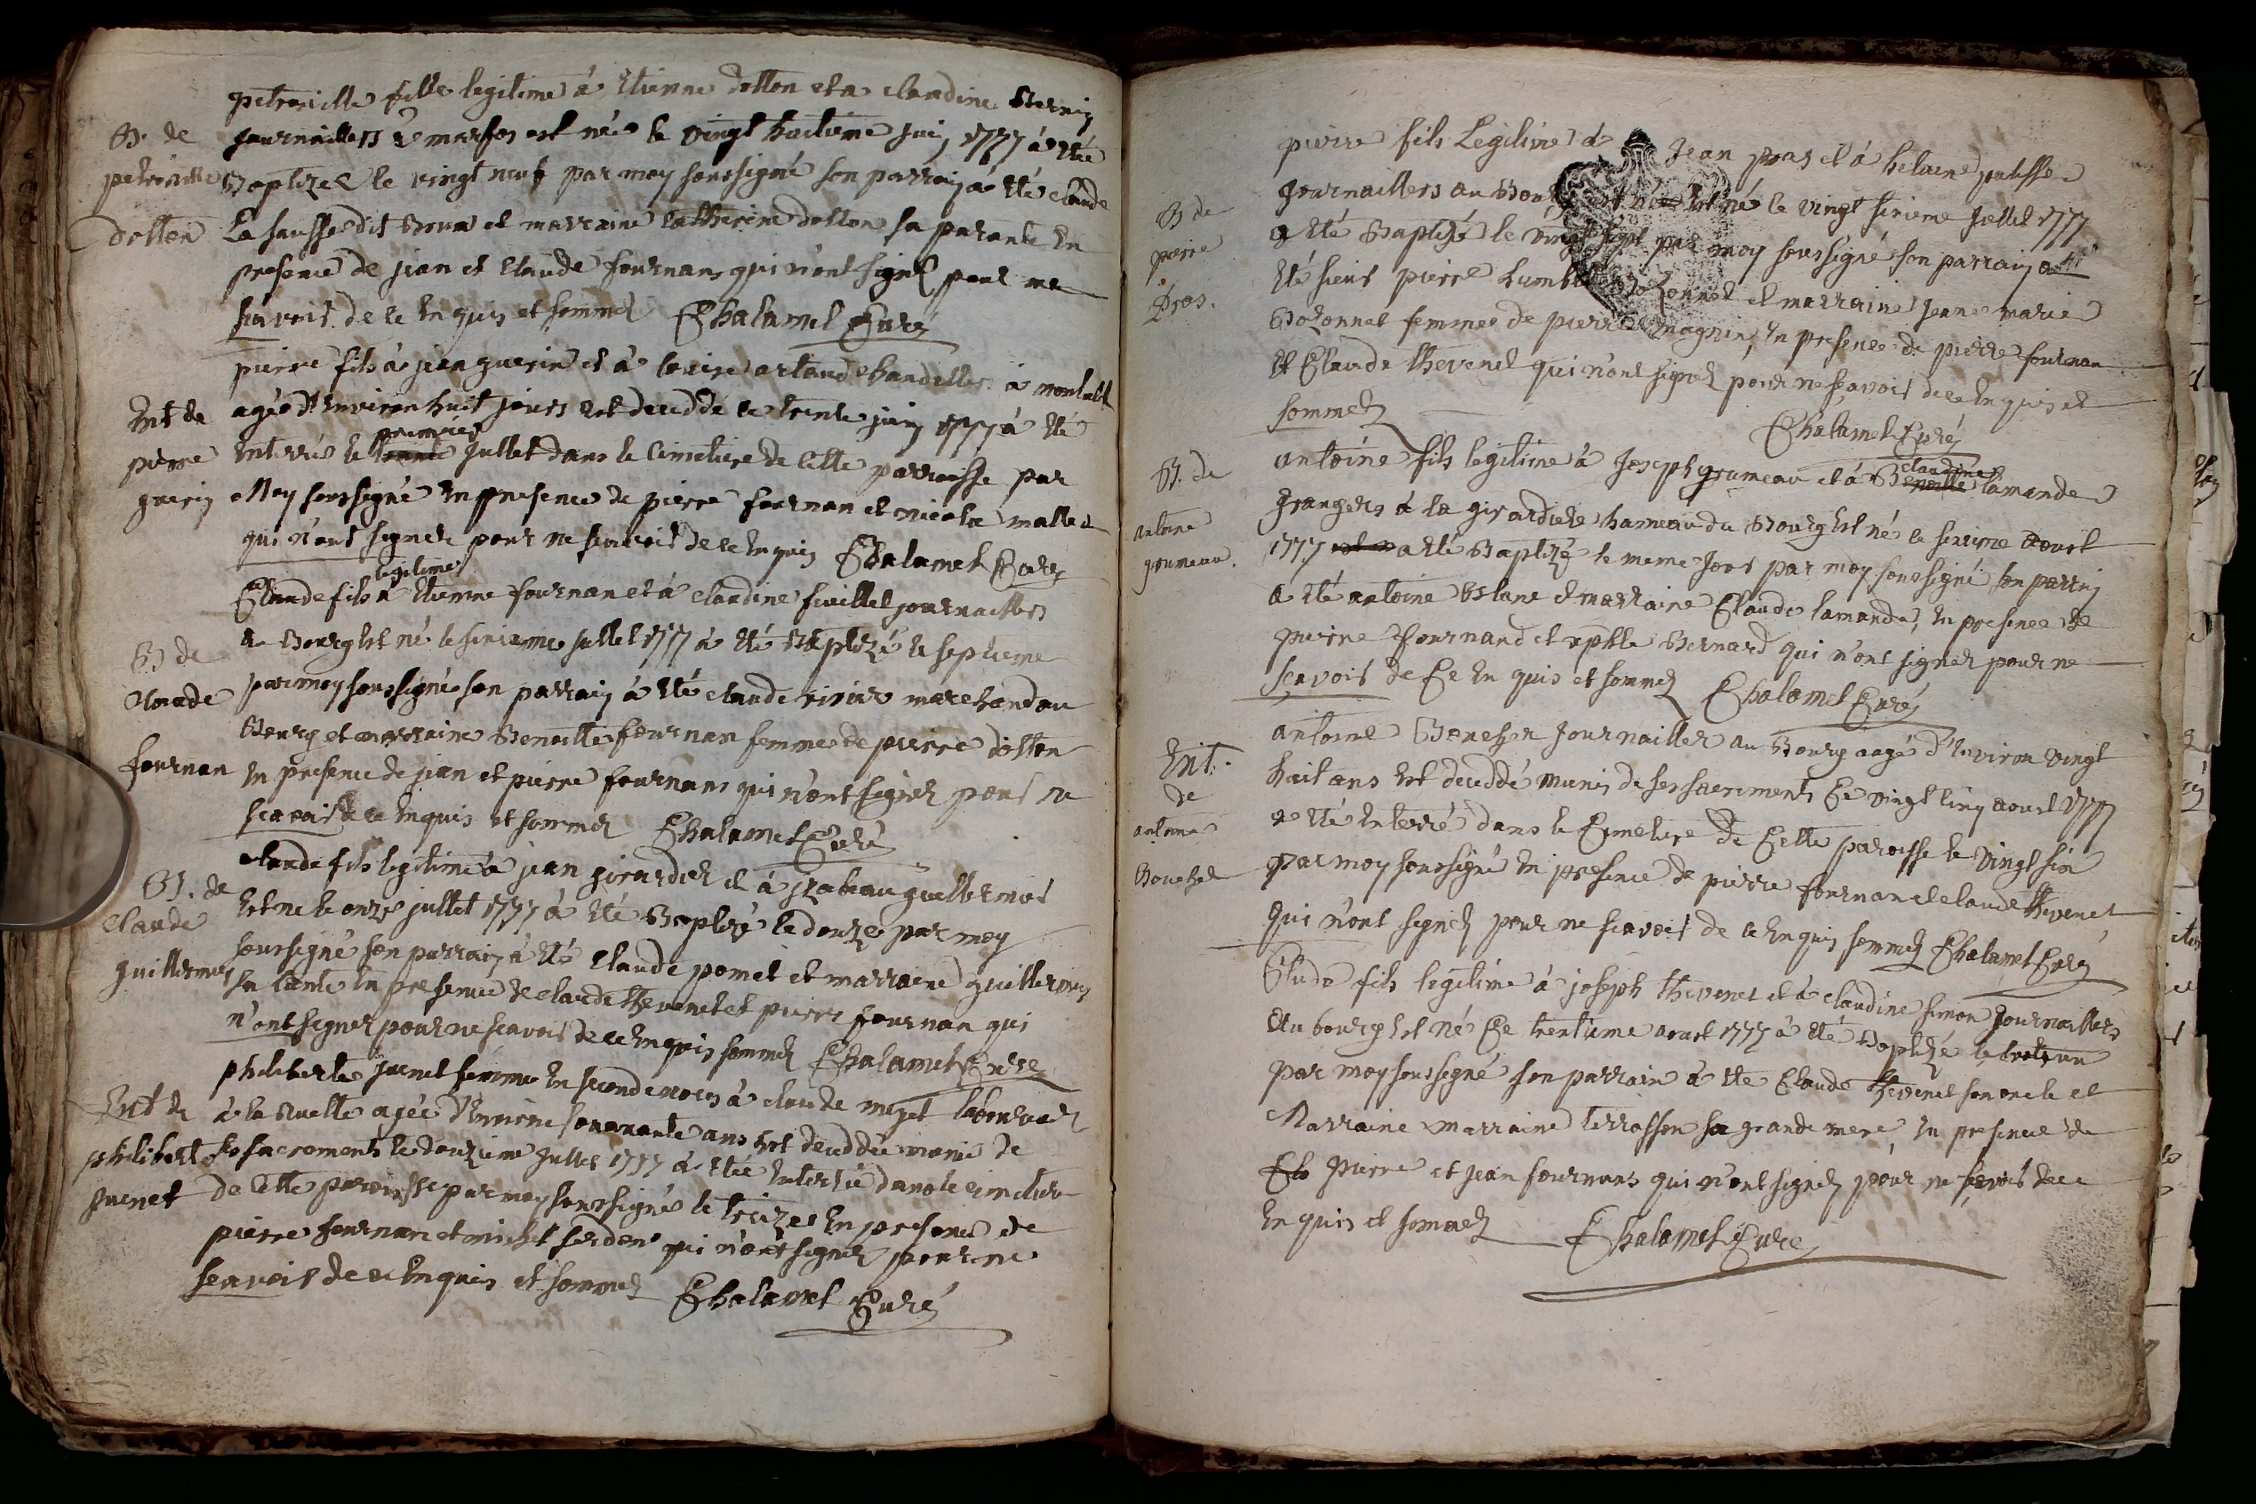 petronille fille legitime à Etienne dotton et a claudine Bernin
B. de
petronille
dotton
journaillers à marfon est née le vingt huitieme juin 1777 à etée
Baptizée le vingt neuf par moy soussigné son parrain à eté claude
La fausse dit Boura et marraine catherine dotton sa parante En
presence de jean et claude fournans qui n'ont signé pour ne
scavoir de ce Enquis et sommé Chalamel Curé
pierre fils à jean guerin et à louise artaud à montaut
Ent de
pierre
guerin
agée d'Environ huit jours est deceddé le trente juin 1777 à eté
Enterré le trente premier Jullet dans le Cimetiere de Cette parroisse par
Moy soussigné En presence de pierre fournan et nicolas mallet
qui n'ont signer pour ne scavoir de ce Enquis Chalamel Curé
Claude fils legitime à Etienne fournan et à claudine fueillet journaillers
B de
Claude
fournan
au Bourg Est né le sixieme Jullet 1777 à eté Baptizé le septieme
par moy soussigné son parrain à eté claude marchand au
Bourg et marraine Benoitte fournan femme de pierre dotton
En presence de jean et pierre fournans qui n'ont signer pour ne
scavoir de ce Enquis et sommer Chalamel Curé
claude fils legitime à jean girardier et à izabeau guillermet
B. de
Claude
guillermet
Est né le onze jullet 1777 à eté Baptizé le douze par moy
soussigné son parrain à eté Claude pomet et marraine guillermet
sa tante En presence de claude thevenet et pierre fournan qui
n'ont signer pour ne scavoir de ce Enquis sommer Chalamel Curé
philiberte juenet femme En seconde noces à claude mozet laboureur
Ent de
philiberte
juenet
à la Ruelle agée d'Environ soixante ans Est deceddée munie de
ses sacrements le douzieme Jullet 1777 à etée Enterrée dans le cimetiere
de Cette paroisse par moy soussigné le treize En presence de
pierre fournan et michel ferdene qui n'ont signer pour ne
scavoir de ce Enquis et sommer Chalamel Curé
pierre fils Legitime à Jean pras et à helaine
B de
pierre
Pras.
journaillers au Bourg est né Est né le vingt sixieme Jullet 1777
a eté Baptizé le vingt sept par moy soussigné son parrain a
eté sieur pierre humbert Bozonnet et marraine Jeane marie
Bozonnet femme de pierre magnin, En presence de pierre fournan
Et Claude thevenet qui n'ont signer pour ne scavoir de ce Enquis et
sommer
Chalamel Curé
antoine fils legitime à Joseph grumeau et à Benoitte claudine lamande
B. de
antoine
grumeau.
Grangers à la girardiere hameau du Bourg Est né le sixieme Aoust
1777 est n a eté Baptizé le meme Jour par moy soussigné son parrin
a eté antoine Estane et marraine Claude lamande, En presence de
pierre fournand et Bernard qui n'ont signer pour ne
scavoir de Ce Enquis et sommer Chalamel Curé
antoine Bouchon Journailler au Bourg aagé d'Environ vingt
Ent.
de
antoine
Bouchon
huit ans Est deceddé munis de ses sacrements Ce vingt cinq aoust 1777
a eté Enterré dans le Cimetiere De Cette paroisse le Vingt six
par moy soussigné En presence de pierre fournan et claude thevenet
Qui n'ont signer pour ne scavoir de ce Enquis sommer Chalamel Curé
Clude fils legitime à joseph thevenet et à claudine simon Journaillers
du bourg Est né Ce trentieme aoust 1777 à eté Baptizé le trete un
par moy soussigné son parrain à ete Claude thevenet son oncle et
Marraine marraine terrasson sa grande mere, En presence de
Clo pierre et jean fournans qui n'ont signer pour ne scavoir de ce
Enquis et sommer Chalamel Curé